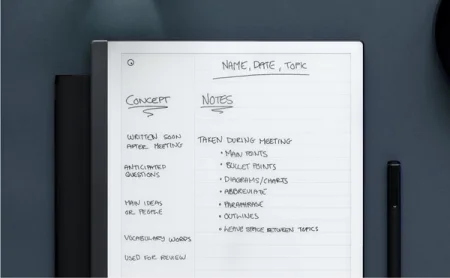 NAME, DATE, TOPIC
CONCEPT
NOTES
WRITTEN SOON
AFTER MEETING
ANTICIPATED
QUESTIONS
MAIN IDEAS
OR PEOPLE
VOCABULARY WORDS
USED FOR REVIEW
TAKEN DURING MEETING
• MAIN POINTS
• BULLET POINTS
• DIAGRAMS/CHARTS
• ABBREVIATE
• PARAPHRASE
• OUTLINES
• LEAVE SPACE BETWEEN TOPICS